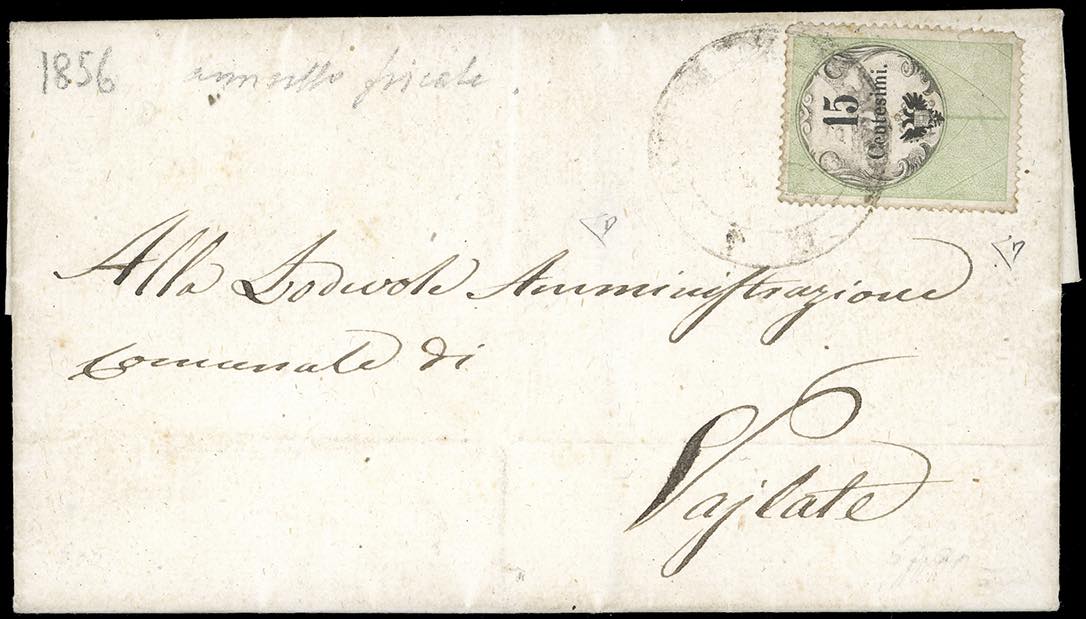 1856 annullo fiscale
15 C
Centesimi.
Alla Lodevole Amministrazione
Comunale di
Vajlate